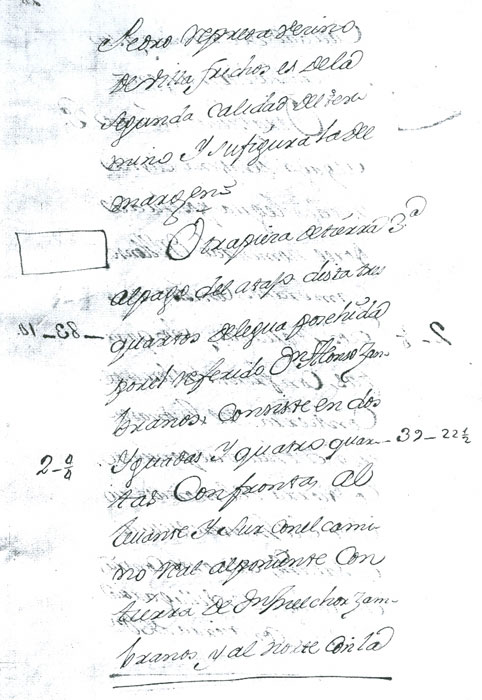 Pedro Represa vecino
de Villa frechos es de la
segunda calidad del ter
mino Y su figura la del
margen=
Otra pieza de tierra 3ª
al pago del atajo dista tres
quartos de legua posehida
por el referido Dn Alonso Zam
branos. Consiste en dos
Yguadas Y quatro quar- 39-22½
2-4/4
tas Confronta al
levante Y Sur con el cami
no real al poniente Con
tierra de Dn Melchor Zam-
brano, y al norte con la